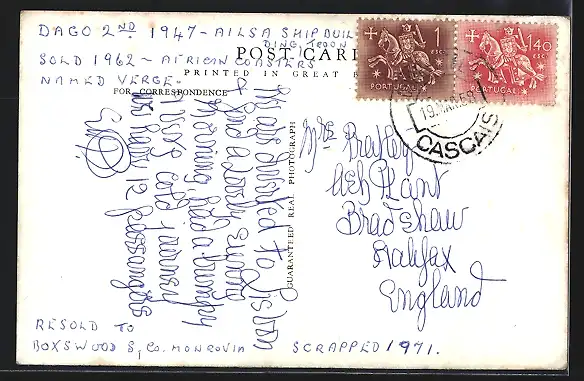 DAGO 2ND 1947 - AILSA SHIPBUIL
DING, TROON
SOLD 1962 - AFRICAN COASTERS
NAMED VERGE.
POST CARD
PRINTED IN GREAT B
FOR CORRESPONDENCE
GUARANTEED REAL PHOTOGRAPH
1 ESC.
PORTUGAL
1$40 ESC.
PORTUGAL
19.MAR.
CASCAIS
to Lisbon
a lovely sunny
Morning, had a bumpy
cold
we have 12 passengers
Mrs Bradley
Ash Plant
Bradshaw
Halifax
England
RESOLD TO
BOXSWOOD S, Co. MONROVIA
SCRAPPED 1971.